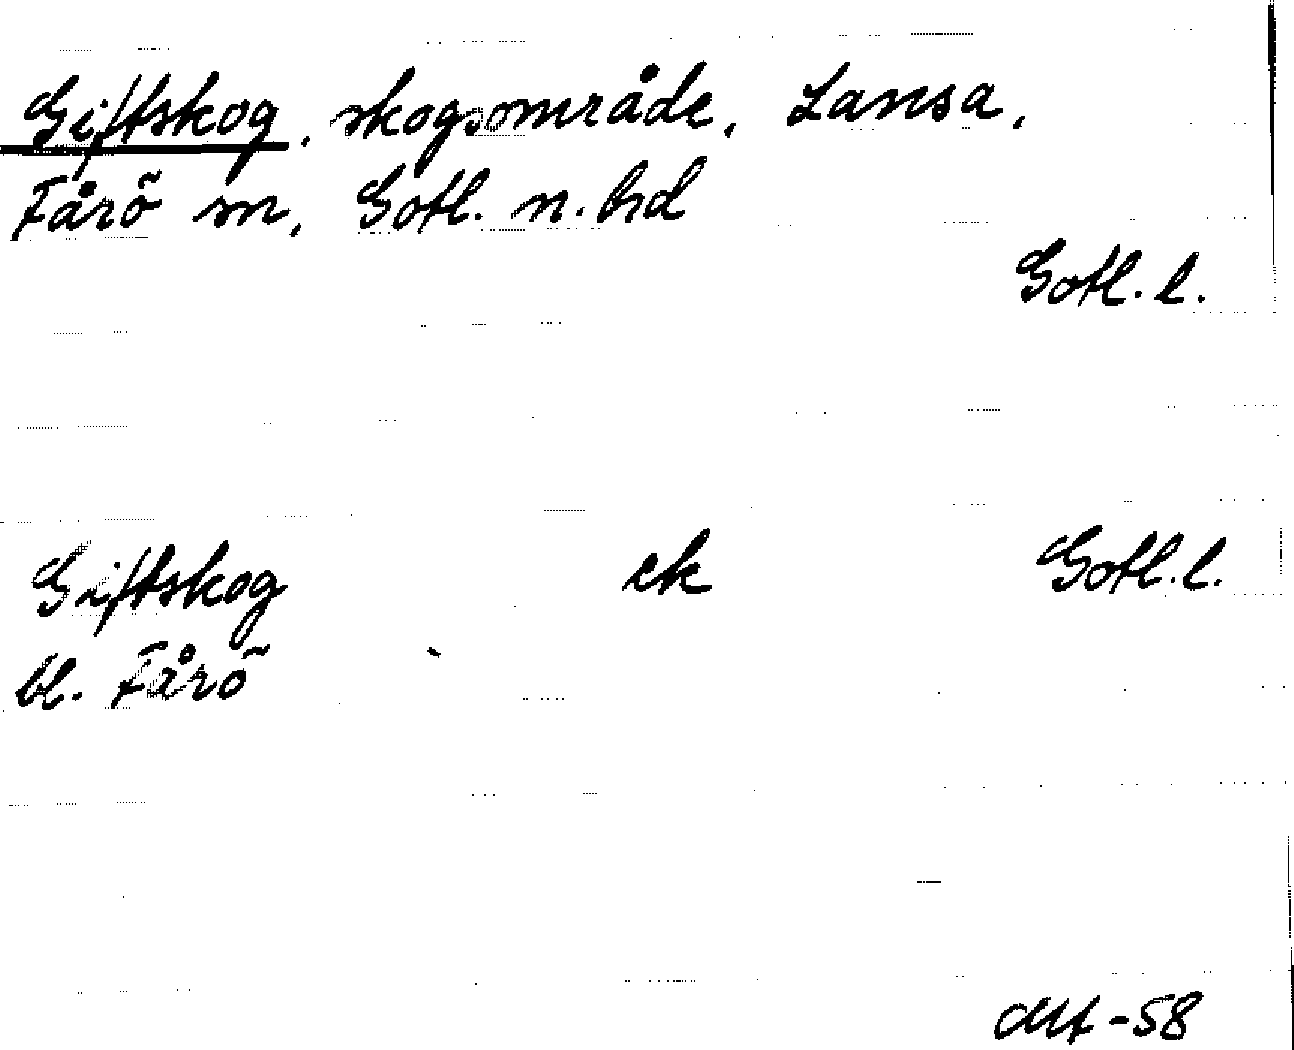 Giftskog, skogsområde, Lansa,
Fårö sn, Gotl. n. hd
Gotl. l.
Giftskog ek Gotl. l.
bl. Fårö
-58